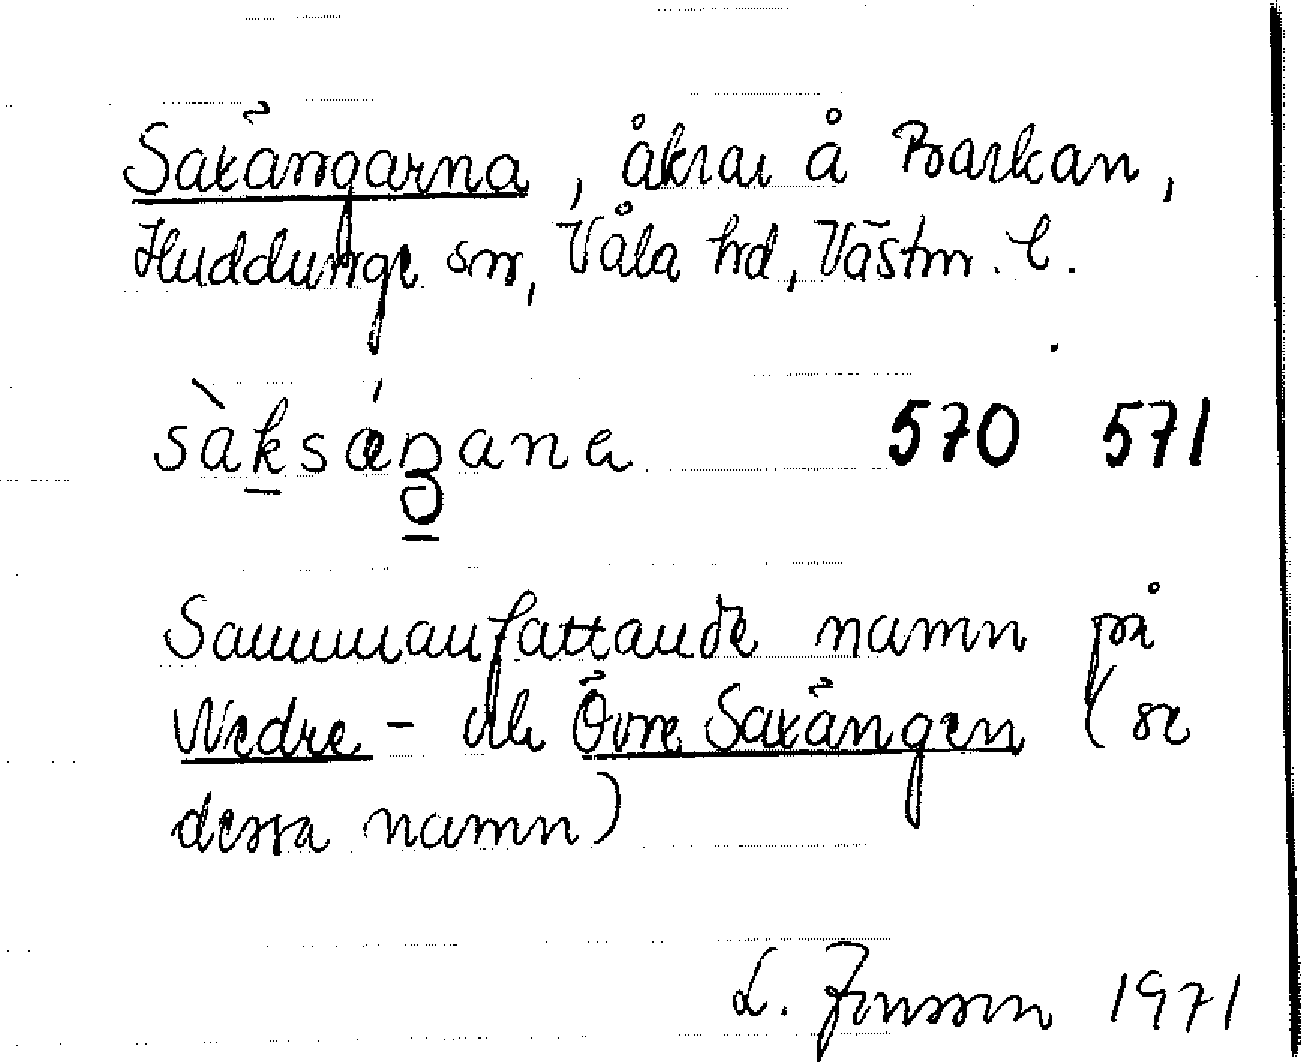 Saxängarna, åkrar å Barkan,
Huddunge sn, Våla hd, Västm. l.
sàksáŋana 570 571
Sammanfattande namn på
Nedre- och Övre Saxängen (se
dessa namn)
L. Jonsson 1971